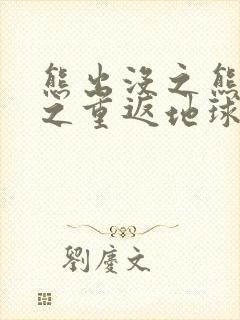 熊出没之熊
之重返地球
劉慶文